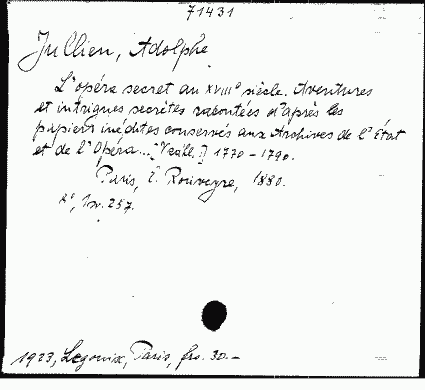 71431
Jullien, Adolphe
L'opéra secret au XVIIIe siècle. Aventures
et intrigues secrètes racontées d'après les
papiers inédites conservés aux Archives de l'État
et de l'Opéra... 1770-1790.
Paris, É. Rouveyre, 1880.
257.
1923, Legouix, Paris, frs. 30.-